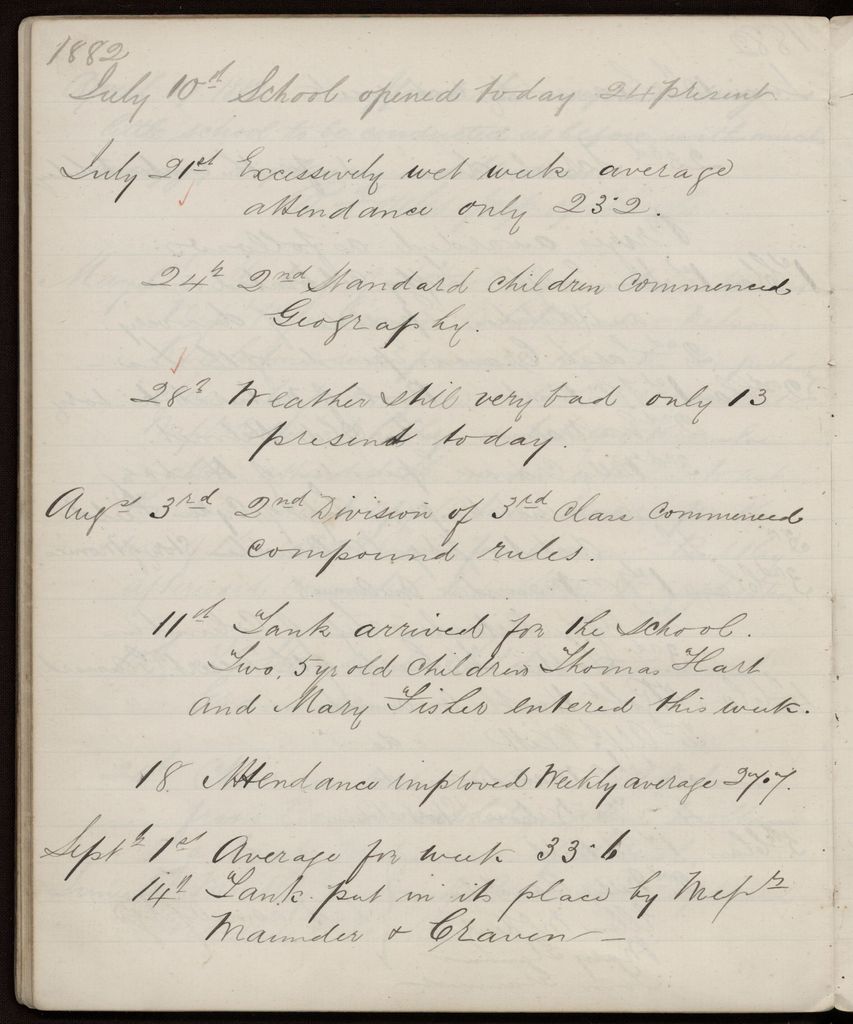 1882
July 10th School opened today 24 present.
July 21st Excessively wet week average
attendance only 23·2.
24th 2nd Standard children commenced
Geography.
28th Weather still very bad only 13
present today.
Augst 3rd 2nd Division of 3rd Class commenced
compound rules.
11th Tank arrived for the School.
Two, 5 yr old children Thomas Hart
and Mary Fisher entered this week.
18. Attendance improved Weekly average 27·7.
Septh 1st Average for week 33·6
14th Tank put in its place by Messrs
Maunder & Craven —